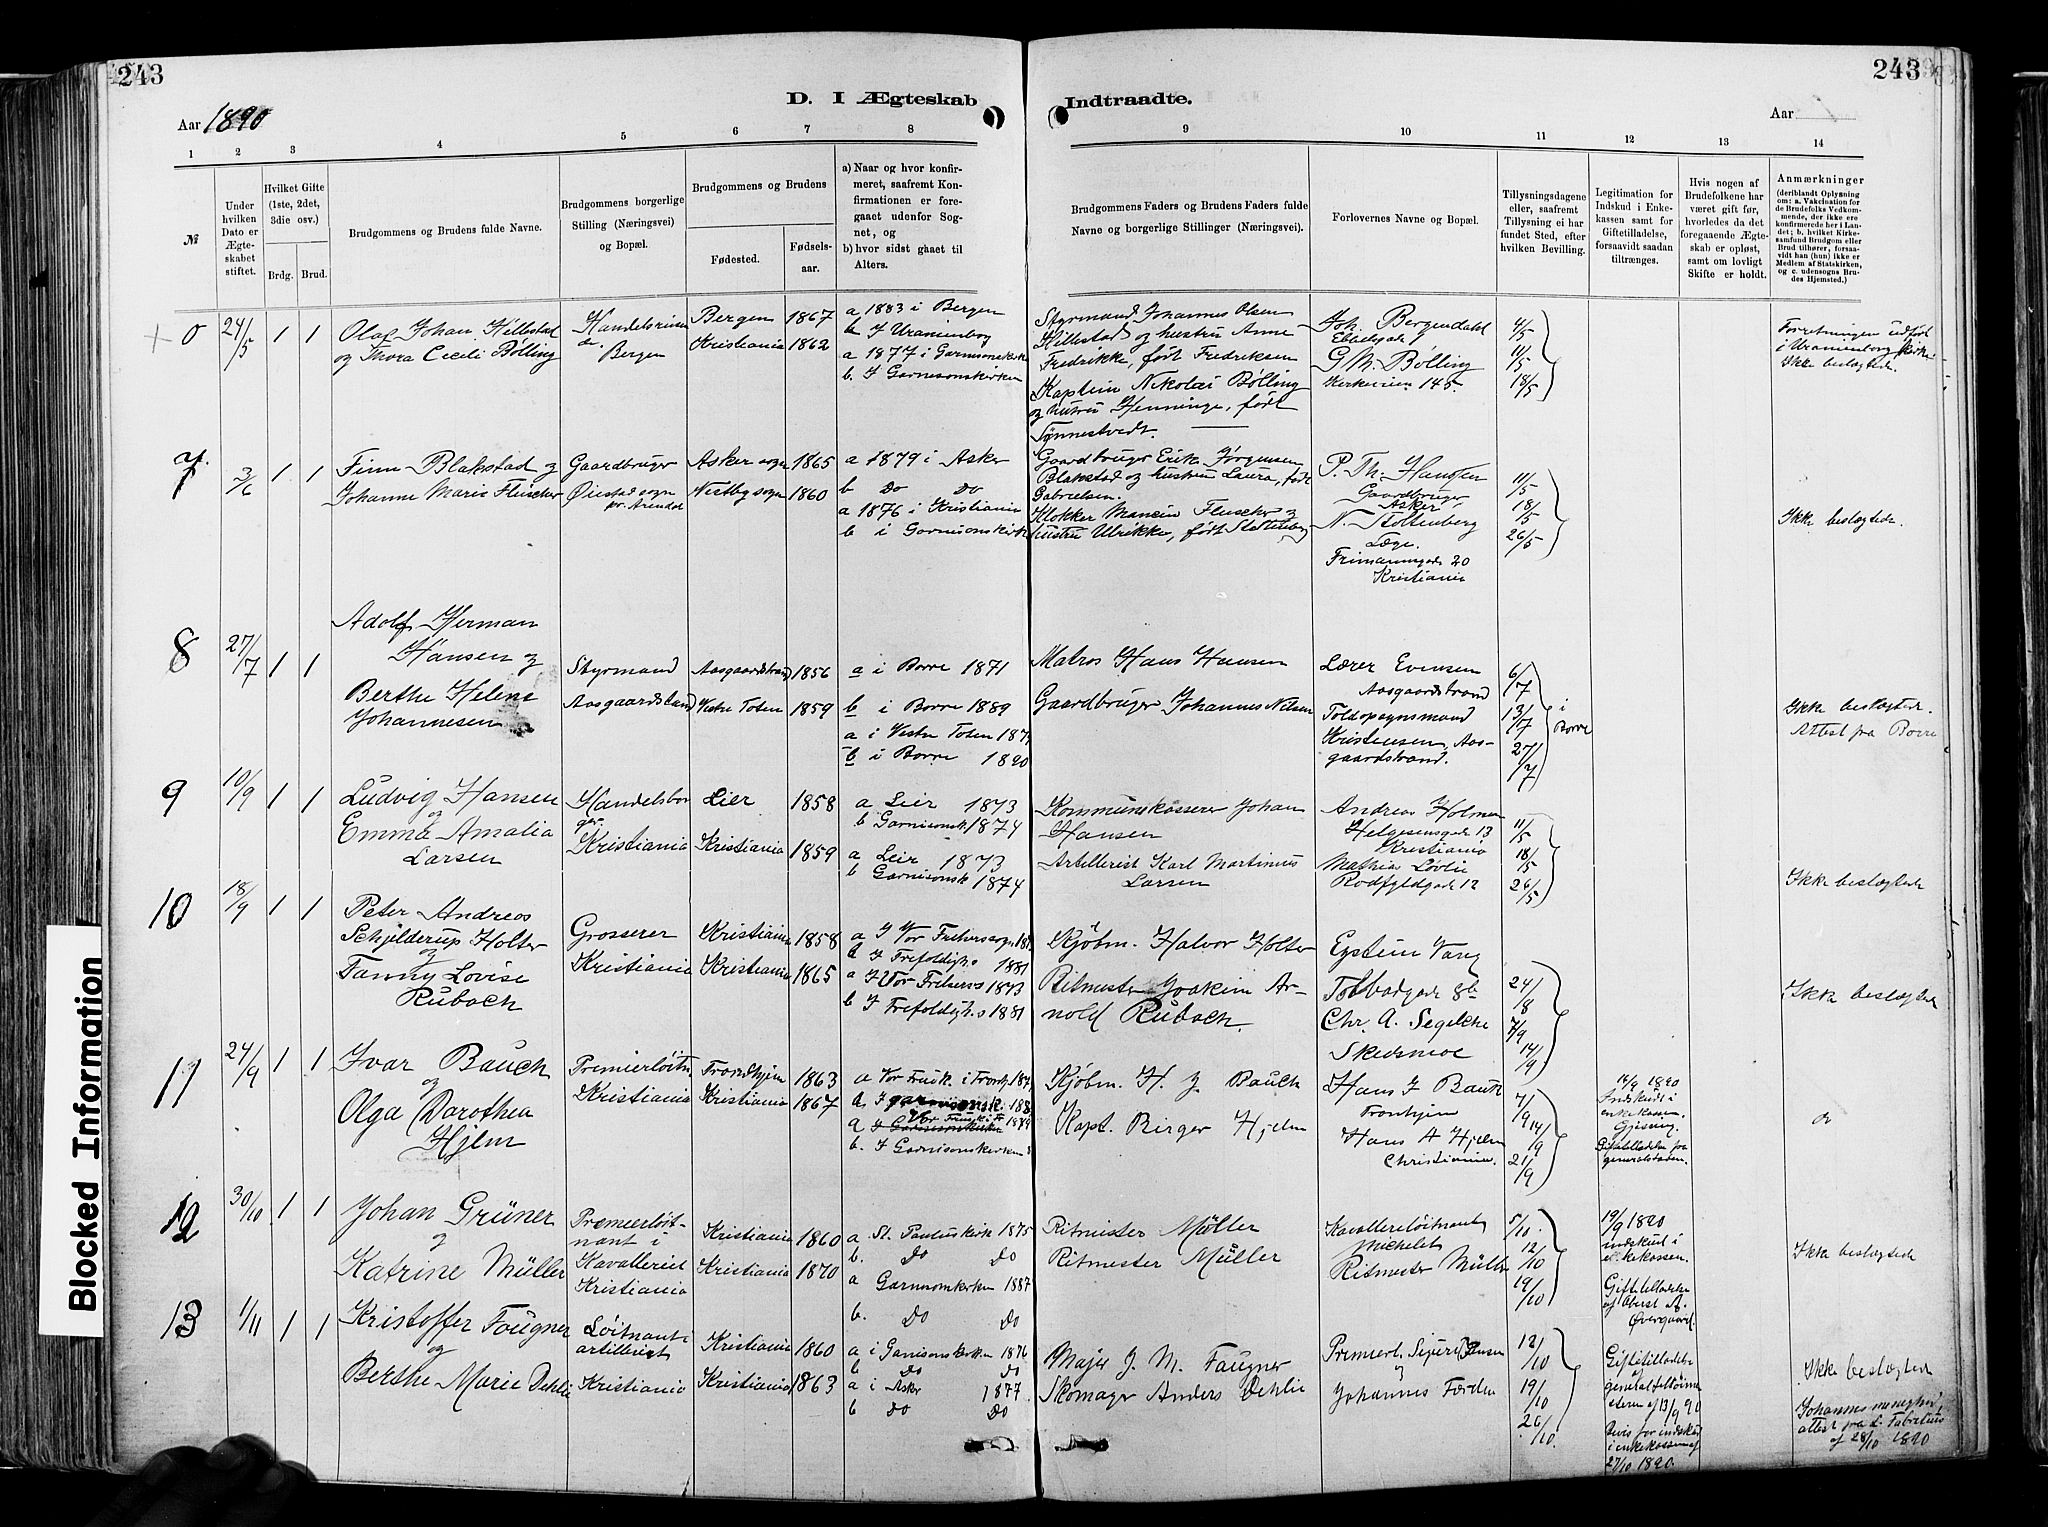 243
243
D. I Ægteskab Indtraadte.
Aar 1890
Aar
1 2 3 4 5 6 7 8 9 10 11 12 13 14
№
Under hvilken Dato er Ægteskabet stiftet.
Hvilket Gifte (1ste, 2det, 3die osv.)
Brdg. Brud.
Brudgommens og Brudens fulde Navne.
Brudgommens borgerlige Stilling (Næringsvei) og Bopæl.
Brudgommens og Brudens
Fødested.
Fødselsaar.
a) Naar og hvor konfirmeret, saafremt Konfirmationen er foregaaet udenfor Sognet, og
b) hvor sidst gaaet til Alters.
Brudgommens Faders og Brudens Faders fulde Navne og borgerlige Stillinger (Næringsvei).
Forlovernes Navne og Bopæl.
Tillysningsdagene eller, saafremt Tillysning ei har fundet Sted, efter hvilken Bevilling.
Legitimation for Indskud i Enkekassen samt for Giftetilladelse, forsaavidt saadan tiltrænges.
Hvis nogen af Brudefolkene har været gift før, hvorledes da det foregaaende Ægteskab er opløst, samt om lovligt Skifte er holdt.
Anmærkninger
(deriblandt Oplysning om: a. Vakcination for de Brudefolks Vedkommende, der ikke ere konfirmerede her i Landet; b. hvilket Kirkesamfund Brudgom eller Brud tilhører, forsaavidt han (hun) ikke er Medlem af Statskirken, og c. udensogns Brudes Hjemsted.)
24/5 1 1
Olaf Johan Hillestad
og Thora Cecili Bølling
Bergen
Bergen 1867
Kristiania 1862
a 1883 i Bergen
b I Uranienborg
a 1877 i Garnisonskirke
b. I Garnisonskirken
Styrmand Johannes Olsen
Hillestad og hustru Anne
Fredrikke, født Fredriksen
Kaptein Nikolai Bølling
og hustru Henninge, født
Tønnestvedt.
Joh. Bergendahl
G. M. Bølling
Kirkeveien 145.
4/5
11/5
18/5
Forretningen udført
i Uranienborg kirke
Ikke beslægtede.
7 3/6 1 1
Finn Blakstad og
Johanne Marie Fleischer
Gaardbruger
Øiestad sogn
pr. Arendal
Asker sogn 1865
Nestby sogn 1860
a 1879 i Asker
b Do Do
a 1876 i Kristiania
b i Garnisonskirke
Gaardbruger Erik Jørgensen
Blakstad og hustru Laura, født
Gabrielsen.
Klokker Fleischer og
hustru Ulrikke, født Stoltenberg
P. Th. Hansen
Gaardbruger
Asker
N. Stoltenberg
Læge.
Frimannsgade 20
Kristiania
11/5
18/5
26/5
Ikke beslægtede.
8 27/7 1 1
Adolf Herman
Hansen og
Berthe Helene
Johannesen
Styrmand
Aasgaardstrand
Aasgaardstrand 1856
Vestre Toten 1859
a i Borre 1871
b i Borre 1889
a i Vestre Toten
b i Borre 1890
Matros Hans Hansen
Gaardbruger Johannes Nilsen
Lærer Evensen
Aasgaardstrand
Toldopsynsmand
Kristensen, Aasgaardstrand.
6/7
13/7
27/7
i Borre
Ikke beslægtede.
Attest fra Borre
9 10/9 1 1
Ludvig Hansen
og
Emma Amalia
Larsen
Kristiania
Lier 1858
Kristiania 1859
a Lier 1873
b Garnisonsk. 1874
a Leir 1873
b Garnisonsk 1874
Kommunekasserer Johan
Hansen
Artillerist Karl Martinius
Larsen
Andreas Holmen
Helgesensgade 13
Kristiania
Mathias Løvlie
Rodfyldgade 12
11/5
18/5
26/5
Ikke beslægtede
10 18/9 1 1
Peter Andreas
Schjelderup Holter
og
Fanny Lovise
Rubach
Grosserer
Kristiania
Kristiania 1858
Kristiania 1865
a I Vor Frelsers sogn
b I Trefoldigh.s 1881
a I Vor Frelsers 1873
b I Trefoldigh.s 1881
Kjøbm. Halvor Holter
Ritmester Joakim Arnold Rubach
Eystein Vang
Tolbodgade 8b
Chr. A. Segelcke
Skedsmoe
24/8
7/9
14/9
Ikke beslægtede
11 24/9 1 1
Ivar Bauck
og
Olga Dorothea
Hjelm
Premierløitn.
Kristiania
Trondhjem 1863
Kristiania 1867
a Vor Fruek. i Trondhj.
b. I garnisonsk.
b. I Garnisonskirken
Kjøbm. H. J. Bauck
Kapt. Birger Hjelm
Hans J Bauck
Trondhjem
Hans A Hjelm
Christiania.
7/9
14/9
21/9
14/9 1890
Indskud i
enkekassen.
Giftetilladelse fra
generalstaben.
do
12 30/10 1 1
Johan Grüner
og
Katrine Müller
Premierløitnant i
Kavalleriet
Kristiania
Kristiania 1860
Kristiania 1870
a St. Pauluskirk 1875
b. Do Do
a Garnisonskirken 1887
b. Do Do
Ritmester Müller
Ritmester Müller
Kavalleriløitnant
Michelet
Ritmester Müller
5/10
12/10
19/10
19/9 1890
indskud i
enkekassen.
Giftetilladelse
af Oberst A.
Øvergaard.
Ikke beslægtede
13 1/11 1 1
Kristoffer Fougner
og
Berthe Marie Dehli
Løitnant i
artilleriet
Kristiania
Kristiania 1860
Kristiania 1863
a i Garnisonskirken 1876
b Do Do
a i Asker 1877
b Do Do
Major J. M. Fougner
Skomager Anders Dehlie
Premierl. Sigurd
og
Johannes Førden
12/10
19/10
26/10
Giftetilladelse
af
generalfeltøimesteren af 13/9 90
Bevis for indskud
i enkekassen af
27/10 1890.
Ikke beslægtede
Johannes menighed,
attest fra L. Fabritius
af 28/10 1890
Blocked Information